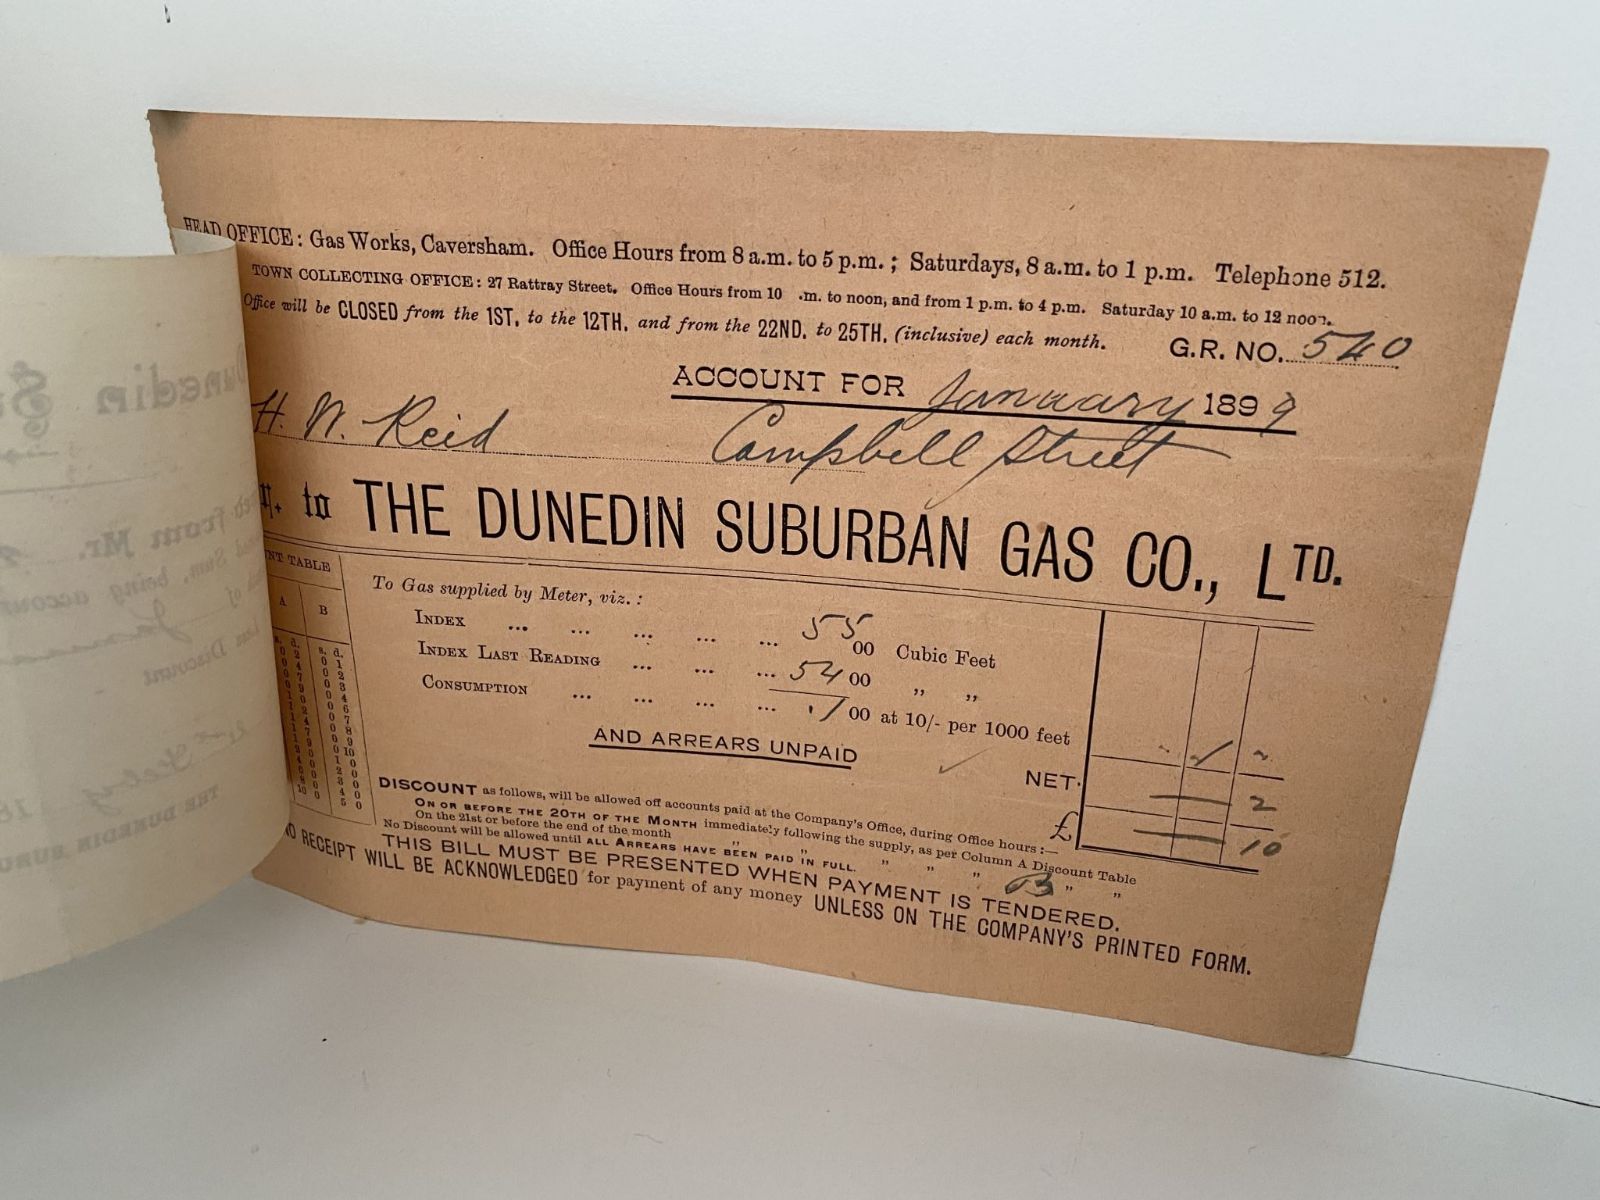 HEAD OFFICE: Gas Works, Caversham. Office Hours from 8 a.m. to 5 p.m.; Saturdays, 8 a.m. to 1 p.m. Telephone 512.
TOWN COLLECTING OFFICE: 27 Rattray Street. Office Hours from 10 .m. to noon, and from 1 p.m. to 4 p.m. Saturday 10 a.m. to 12 noon.
Office will be CLOSED from the 1ST. to the 12TH. and from the 22ND. to 25TH. (inclusive) each month.
G.R. NO. 540
ACCOUNT FOR January 1899
H. W. Reid Campbell Street
to THE DUNEDIN SUBURBAN GAS CO., LTD.
NT TABLE
A B
s. d. s. d.
To Gas supplied by Meter, viz.:
INDEX ... ... ... ... ... 5500 Cubic Feet
INDEX LAST READING ... ... ... 5400 " "
CONSUMPTION ... ... ... ... .100 at 10/- per 1000 feet
AND ARREARS UNPAID
- 1 -
NET. — 2
£ — 10
DISCOUNT as follows, will be allowed off accounts paid at the Company's Office, during Office hours:—
ON OR BEFORE THE 20TH OF THE MONTH immediately following the supply, as per Column A Discount Table
On the 21st or before the end of the month " " " " " B " "
No Discount will be allowed until ALL ARREARS HAVE BEEN PAID IN FULL.
THIS BILL MUST BE PRESENTED WHEN PAYMENT IS TENDERED.
NO RECEIPT WILL BE ACKNOWLEDGED for payment of any money UNLESS ON THE COMPANY'S PRINTED FORM.